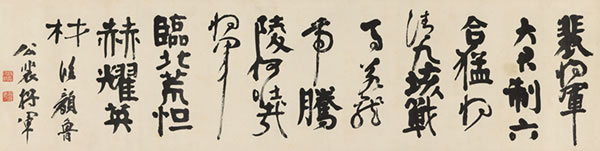 裴将軍
大君制六
合猛将
清九垓戰
馬若龍
虎騰
陵何壯哉
将軍
臨北荒恒
赫耀英
材 臨顏魯
公裴将軍